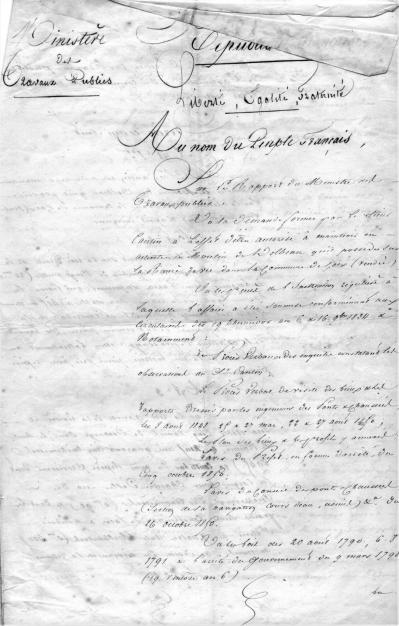 Ministère
des
Travaux Publics
Liberté, Egalité, Fraternité
Au nom du Peuple Français,
Sur le Rapport du Ministre des
Travaux publics;
Vu la demande formée par le Sieur
à l'effet d'être autorisé à maintenir en
activité le Moulin de qu'il possède sur
la dans la Commune de (Vendée)
Vu les pièces de l'Instruction régulière à
laquelle l'affaire a été soumise conformément aux
circulaires des 19 thermidor an 6 et 16 9bre 1834 et
Notamment:
Les Procès Verbaux des enquêtes constatant les
observations du Sr
Le Procès Verbal de visite des lieux et les
rapports dressés par les ingénieurs des Ponts et chaussées
les août 27 mai, 22 et 27 août 1850;
Le plan des lieux et les profils y annexés
L'avis du Préfet, en forme d'arrêté, du
Cinq octobre 1850.
L'avis du Conseil des ponts et chaussées
(Section de la navigation, cours d'eau, usines) &a du
16 octobre 1850.
Vu les lois des 20 août 1790, 6 8bre
1791 et l'arrêté du Gouvernement du 9 mars 1798
(19 Ventôse an 6)